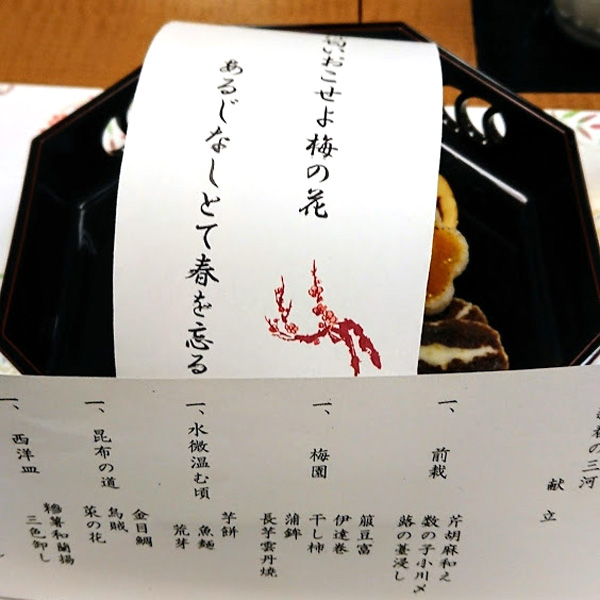 おこせよ梅の花
あるじなしとて春を忘る
の三河
献立
一、前栽
芹胡麻和え
数の子小川〆
蕗の薹浸し
一、梅園
伊達巻
干し柿
蒲鉾
長芋雲丹焼
一、水微温む頃
芋餅
魚麺
荒芽
一、昆布の道
金目鯛
烏賊
菜の花
一、西洋皿
三色卸し